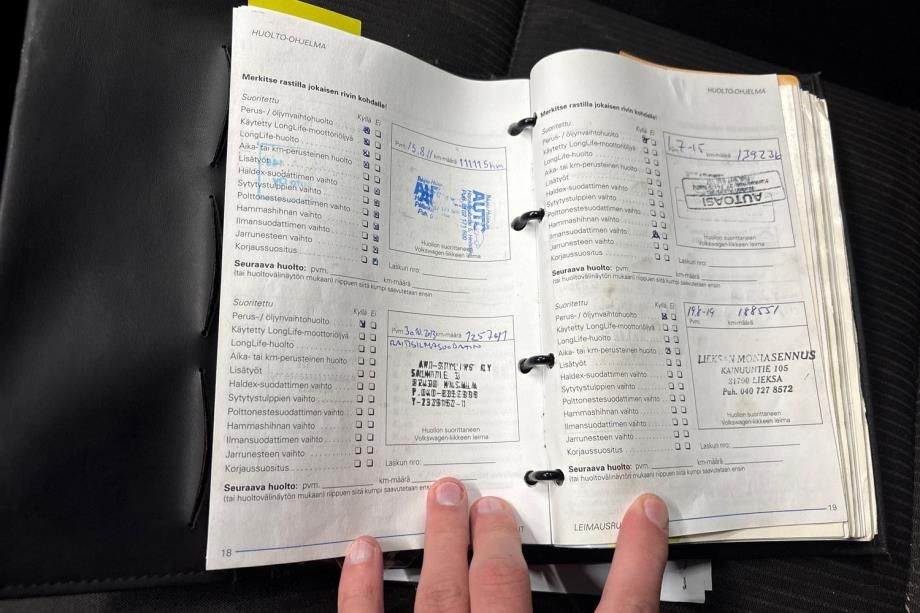 HUOLTO-OHJELMA
Merkitse rastilla jokaisen rivin kohdalle!
Suoritettu
Kyllä Ei
Perus- / öljynvaihtohuolto
Käytetty LongLife-moottoriöljyä
LongLife-huolto
Aika- tai km-perusteinen huolto
Lisätyöt
Haldex-suodattimen vaihto
Sytytystulppien vaihto
Polttonestesuodattimen vaihto
Hammashihnan vaihto
Ilmansuodattimen vaihto
Jarrunesteen vaihto
Korjaussuositus
Pvm. 15.8.11 km-määrä 111115km
AUTO
Huollon suorittaneen
Volkswagen-liikkeen leima
Laskun nro:
Seuraava huolto: pvm. km-määrä
(tai huoltovälinäytön mukaan) riippuen siitä kumpi saavutetaan ensin
Suoritettu
Kyllä Ei
Perus- / öljynvaihtohuolto
Käytetty LongLife-moottoriöljyä
LongLife-huolto
Aika- tai km-perusteinen huolto
Lisätyöt
Haldex-suodattimen vaihto
Sytytystulppien vaihto
Polttonestesuodattimen vaihto
Hammashihnan vaihto
Ilmansuodattimen vaihto
Jarrunesteen vaihto
Korjaussuositus
Pvm. 30.10.2013 km-määrä
RAITISILMASUODATIN
Huollon suorittaneen
Volkswagen-liikkeen leima
Laskun nro:
Seuraava huolto: pvm. km-määrä
(tai huoltovälinäytön mukaan) riippuen siitä kumpi saavutetaan
18
HUOLTO-OHJELMA
Merkitse rastilla jokaisen rivin kohdalle!
Suoritettu
Kyllä Ei
Perus- / öljynvaihtohuolto
Käytetty LongLife-moottoriöljyä
LongLife-huolto
Aika- tai km-perusteinen huolto
Lisätyöt
Haldex-suodattimen vaihto
Sytytystulppien vaihto
Polttonestesuodattimen vaihto
Hammashihnan vaihto
Ilmansuodattimen vaihto
Jarrunesteen vaihto
Korjaussuositus
7-15 km-määrä
AUTOASI
Huollon suorittaneen
Volkswagen-liikkeen leima
Laskun nro:
Seuraava huolto: pvm. km-määrä
(tai huoltovälinäytön mukaan) riippuen siitä kumpi saavutetaan ensin
Suoritettu
Kyllä Ei
Perus- / öljynvaihtohuolto
Käytetty LongLife-moottoriöljyä
LongLife-huolto
Aika- tai km-perusteinen huolto
Lisätyöt
Haldex-suodattimen vaihto
Sytytystulppien vaihto
Polttonestesuodattimen vaihto
Hammashihnan vaihto
Ilmansuodattimen vaihto
Jarrunesteen vaihto
Korjaussuositus
19.8-19 188551
Pvm. km-määrä
LIEKSAN MONIASENNUS
KAINUUNTIE 105
81700 LIEKSA
Puh. 040 727 8572
Huollon suorittaneen
Volkswagen-liikkeen leima
Laskun nro:
Seuraava huolto: pvm. km-määrä
(tai huoltovälinäytön mukaan) riippuen siitä kumpi saavutetaan ensin
19